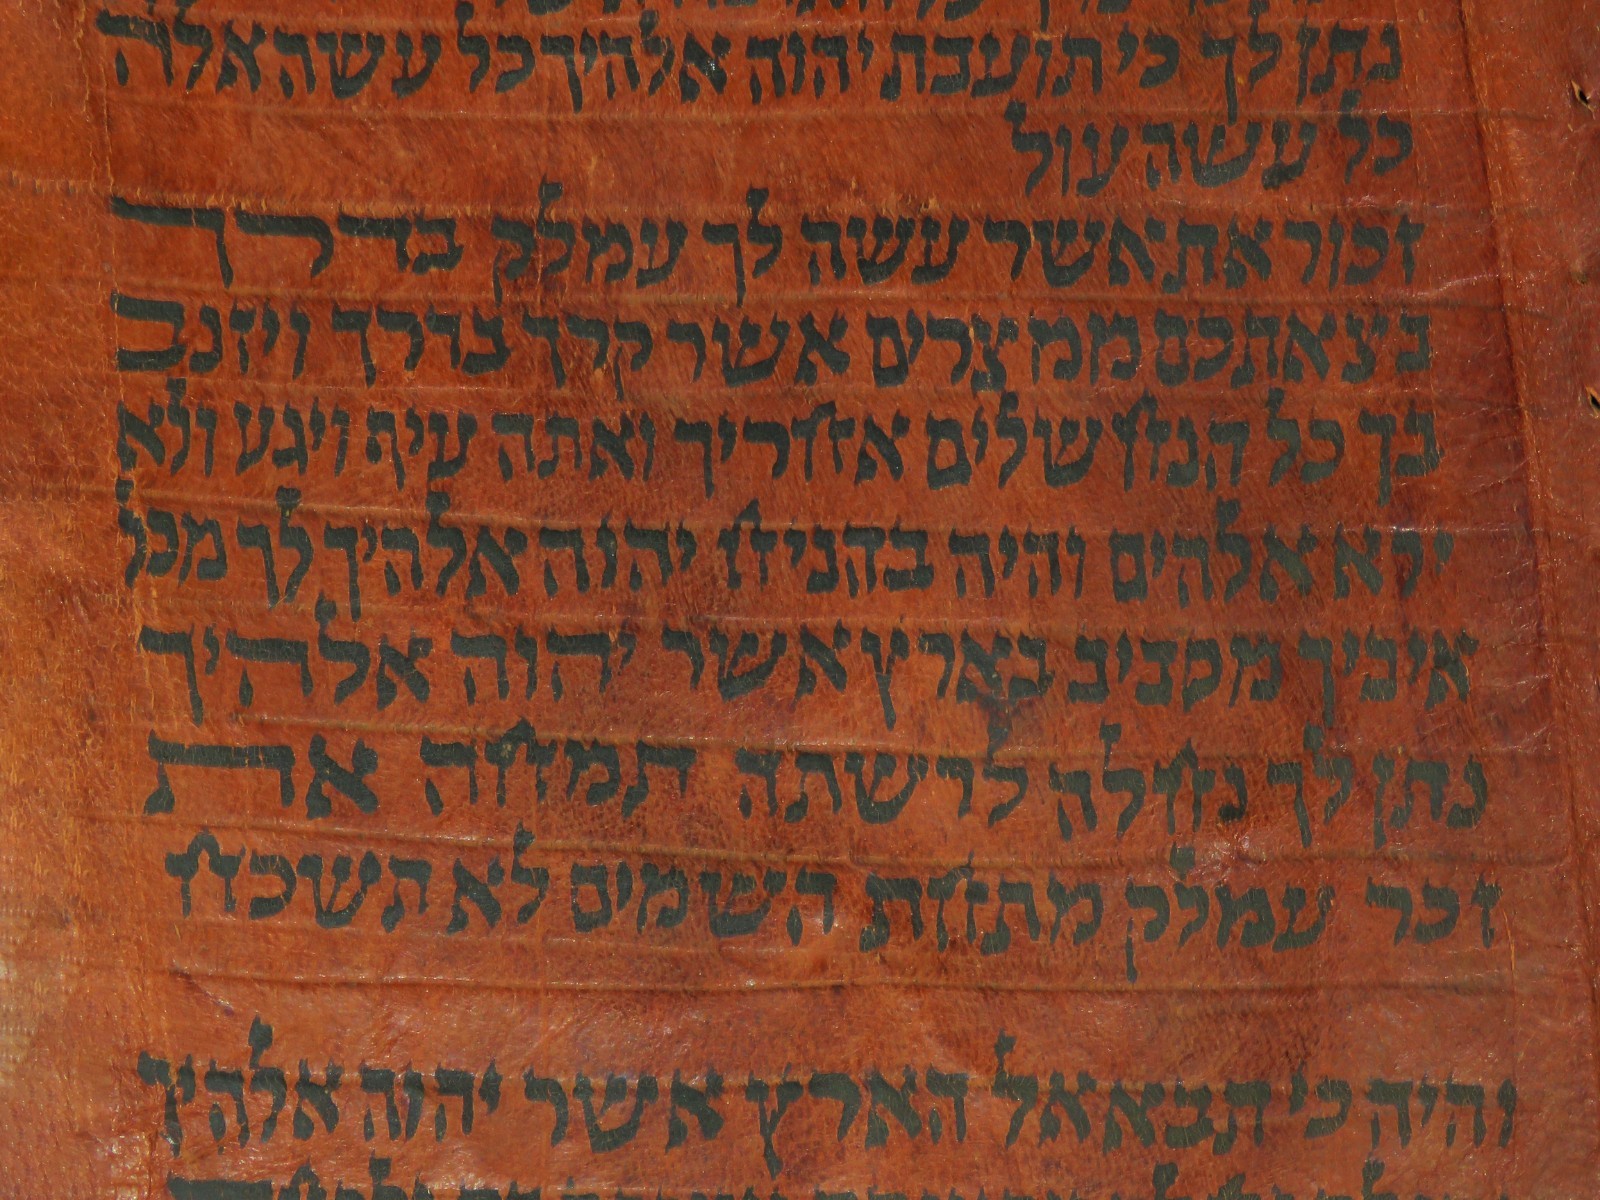 נתן לך כי תועבת יהוה אלהיך כל עשה אלה
כל עשה עול
זכור את אשר עשה לך עמלק בדרך
בצאתכם ממצרים אשר קרך בדרך ויזנב
בך כל הנחשלים אחריך ואתה עיף ויגע ולא
ירא אלהים והיה בהניח יהוה אלהיך לך מכל
איביך מסביב בארץ אשר יהוה אלהיך
נתן לך נחלה לרשתה תמחה את
זכר עמלק מתחת השמים לא תשכח
והיה כי תבא אל הארץ אשר יהוה אלהיך